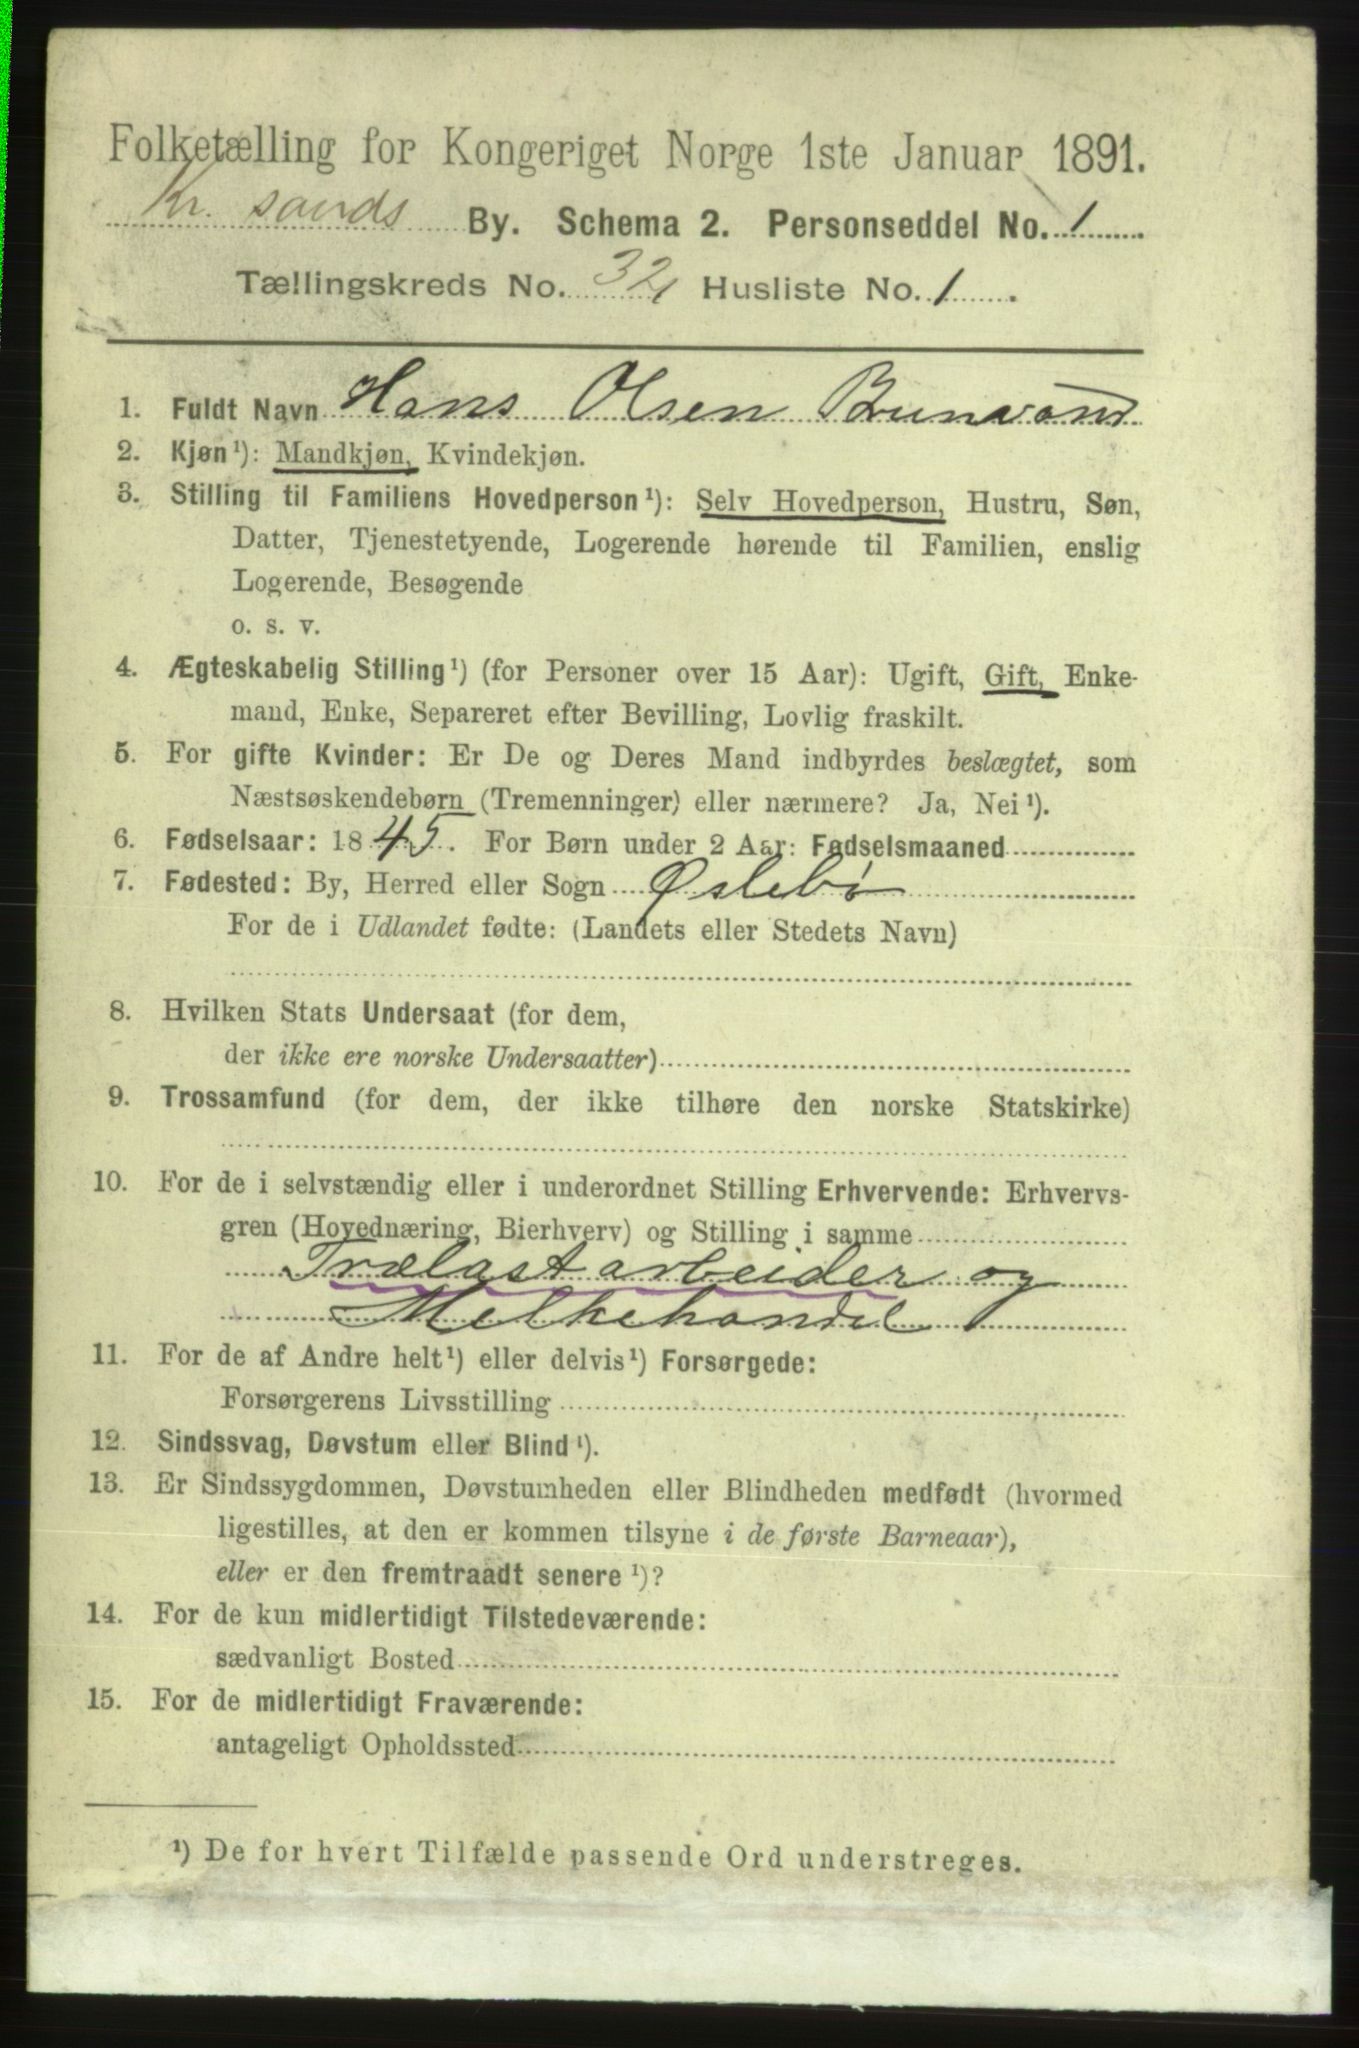 Folketælling for Kongeriget Norge 1ste Januar 1891.
Kr. sands By. Schema 2. Personseddel No. 1
Tællingskreds No. 32 Husliste No. 1
1. Fuldt Navn Hans Olsen Brunvand
2. Kjøn¹): Mandkjøn, Kvindekjøn.
3. Stilling til Familiens Hovedperson¹): Selv Hovedperson, Hustru, Søn,
Datter, Tjenestetyende, Logerende hørende til Familien, enslig
Logerende, Besøgende
o. s. v.
4. Ægteskabelig Stilling¹) (for Personer over 15 Aar): Ugift, Gift, Enke-
mand, Enke, Separeret efter Bevilling, Lovlig fraskilt.
5. For gifte Kvinder: Er De og Deres Mand indbyrdes beslægtet, som
Næstsøskendebørn (Tremenninger) eller nærmere? Ja, Nei¹).
6. Fødselsaar: 1845. For Børn under 2 Aar: Fødselsmaaned
7. Fødested: By, Herred eller Sogn Øslebø
For de i Udlandet fødte: (Landets eller Stedets Navn)
8. Hvilken Stats Undersaat (for dem,
der ikke ere norske Undersaatter)
9. Trossamfund (for dem, der ikke tilhøre den norske Statskirke)
10. For de i selvstændig eller i underordnet Stilling Erhvervende: Erhvervs-
gren (Hovednæring, Bierhverv) og Stilling i samme
Trælastarbeider og
Melkehandel
11. For de af Andre helt¹) eller delvis¹) Forsørgede:
Forsørgerens Livsstilling
12. Sindssvag, Døvstum eller Blind¹).
13. Er Sindssygdommen, Døvstumheden eller Blindheden medfødt (hvormed
ligestilles, at den er kommen tilsyne i de første Barneaar),
eller er den fremtraadt senere¹)?
14. For de kun midlertidigt Tilstedeværende:
sædvanligt Bosted
15. For de midlertidigt Fraværende:
antageligt Opholdssted
¹) De for hvert Tilfælde passende Ord understreges.